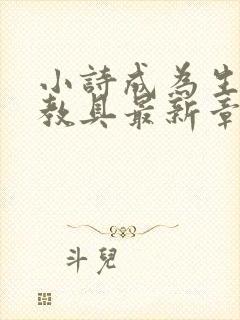 小詩成為生
教具最新章
斗兒